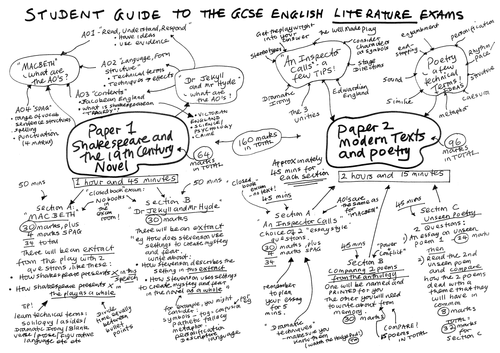 STUDENT GUIDE TO THE GCSE ENGLISH LITERATURE EXAMS
AO1 - Read, Understand, Respond
• Have ideas
• Use evidence
"MACBETH"
- what are
the AO's?
AO2 "Language, Form,
structure"
• Technical terms
• Effects
AO3 "Contexts"
• Jacobean England
• what is Shakespearean
Tragedy?
AO4 "SPAG"
• range of vocab
• sentence structures
• spelling
• Punctuation
(4 marks)
Dr Jekyll
and Mr Hyde
- what are
the AO's?
• VICTORIAN
ENGLAND
• SCIENCE/
PSYCHOLOGY
• CRIME
Paper 1
Shakespeare and
The 19th Century
Novel
64
marks
IN TOTAL
160 marks
IN TOTAL
Get the playwright
into your
answer
The Well Made Play
consider
characters as
symbols
Stage
Directions
Edwardian
England
The 3
unities
Dramatic
Irony
Stereotypes
An Inspector
Calls - a few
TIPS!
Poetry
- a few
technical
Terms!
enjambement
personification
end-
stopping
Rhyme
Rhythm
Structure
Caesura
metaphor
Simile
Sound
Paper 2
Modern Texts
and poetry
96
marks
IN TOTAL
1 hour and 45 minutes
50 mins
50 mins
"closed book exam"
No books
in the
exam
room!
Section A
"MACBETH"
30 marks, plus
4 marks SPAG
34 total
There will be an extract
from the play with 2
questions like these:
• How Shakespeare presents X in this
speech
• How Shakespeare presents X
in the play as a whole
TIP!
learn technical terms:
soliloquy/asides/
Dramatic Irony/Blank
verse/prose/figurative
language etc etc
Divide time
equally
between
bullet
points
Section B
"Dr Jekyll and Mr Hyde"
30 marks
There will be an extract
eg How does Stevenson use
settings to create mystery
and fear
write about:
• How Stevenson describes the
setting in this extract
• How Stevenson uses settings
to create mystery and fear
in the novel as a whole
for example, you might
consider:
symbolism
pathetic fallacy
metaphor
personification
Descriptive
language
Approximately
45 mins for
each section
2 hours and 15 minutes
"closed
book
exam"
45 mins
Section A
An Inspector Calls
Choice of 2 "essay style"
questions
30 marks, plus
4 SPAG
34
remember
to plan
your essay
for 5
mins.
• Dramatic
techniques
AO's are the
same as
for
"MACBETH"
45 mins
"Power
and
Conflict"
Section B
Comparing 2 poems
from the anthology
One will be named and
PRINTED for you
The other you will need
to write about from
memory
30 marks
COMPARE!
2 POEMS
45 mins
Section C
Unseen Poetry
2 questions:
1) Essay on unseen
poem 1
24 marks
then
2) Read the 2nd
unseen poem
and compare
how the 2 poems
deal with a
theme that they
will have in
common
8 marks
Total =
32 marks
for
section C